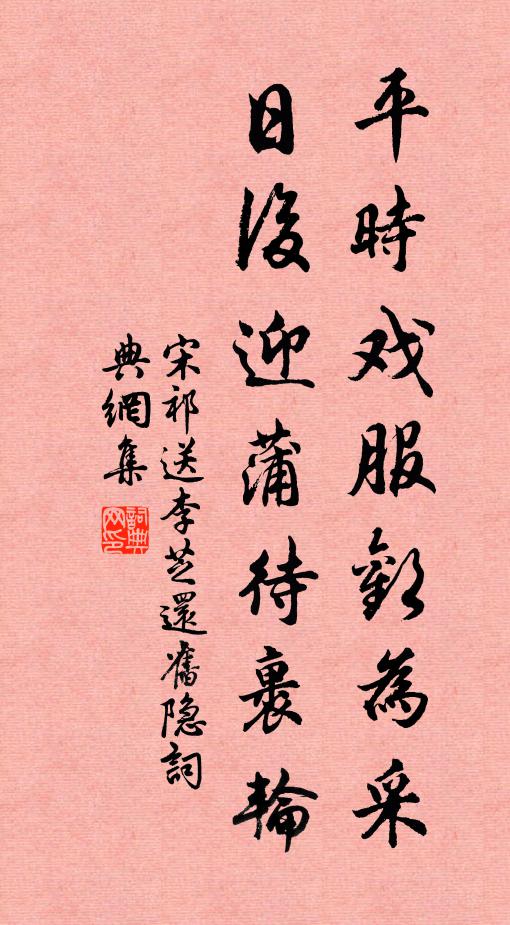 平時戏服歡為采
日後迎蒲待裹輪
宋祁送李芝還舊隐詞
典網集
詞典
网印